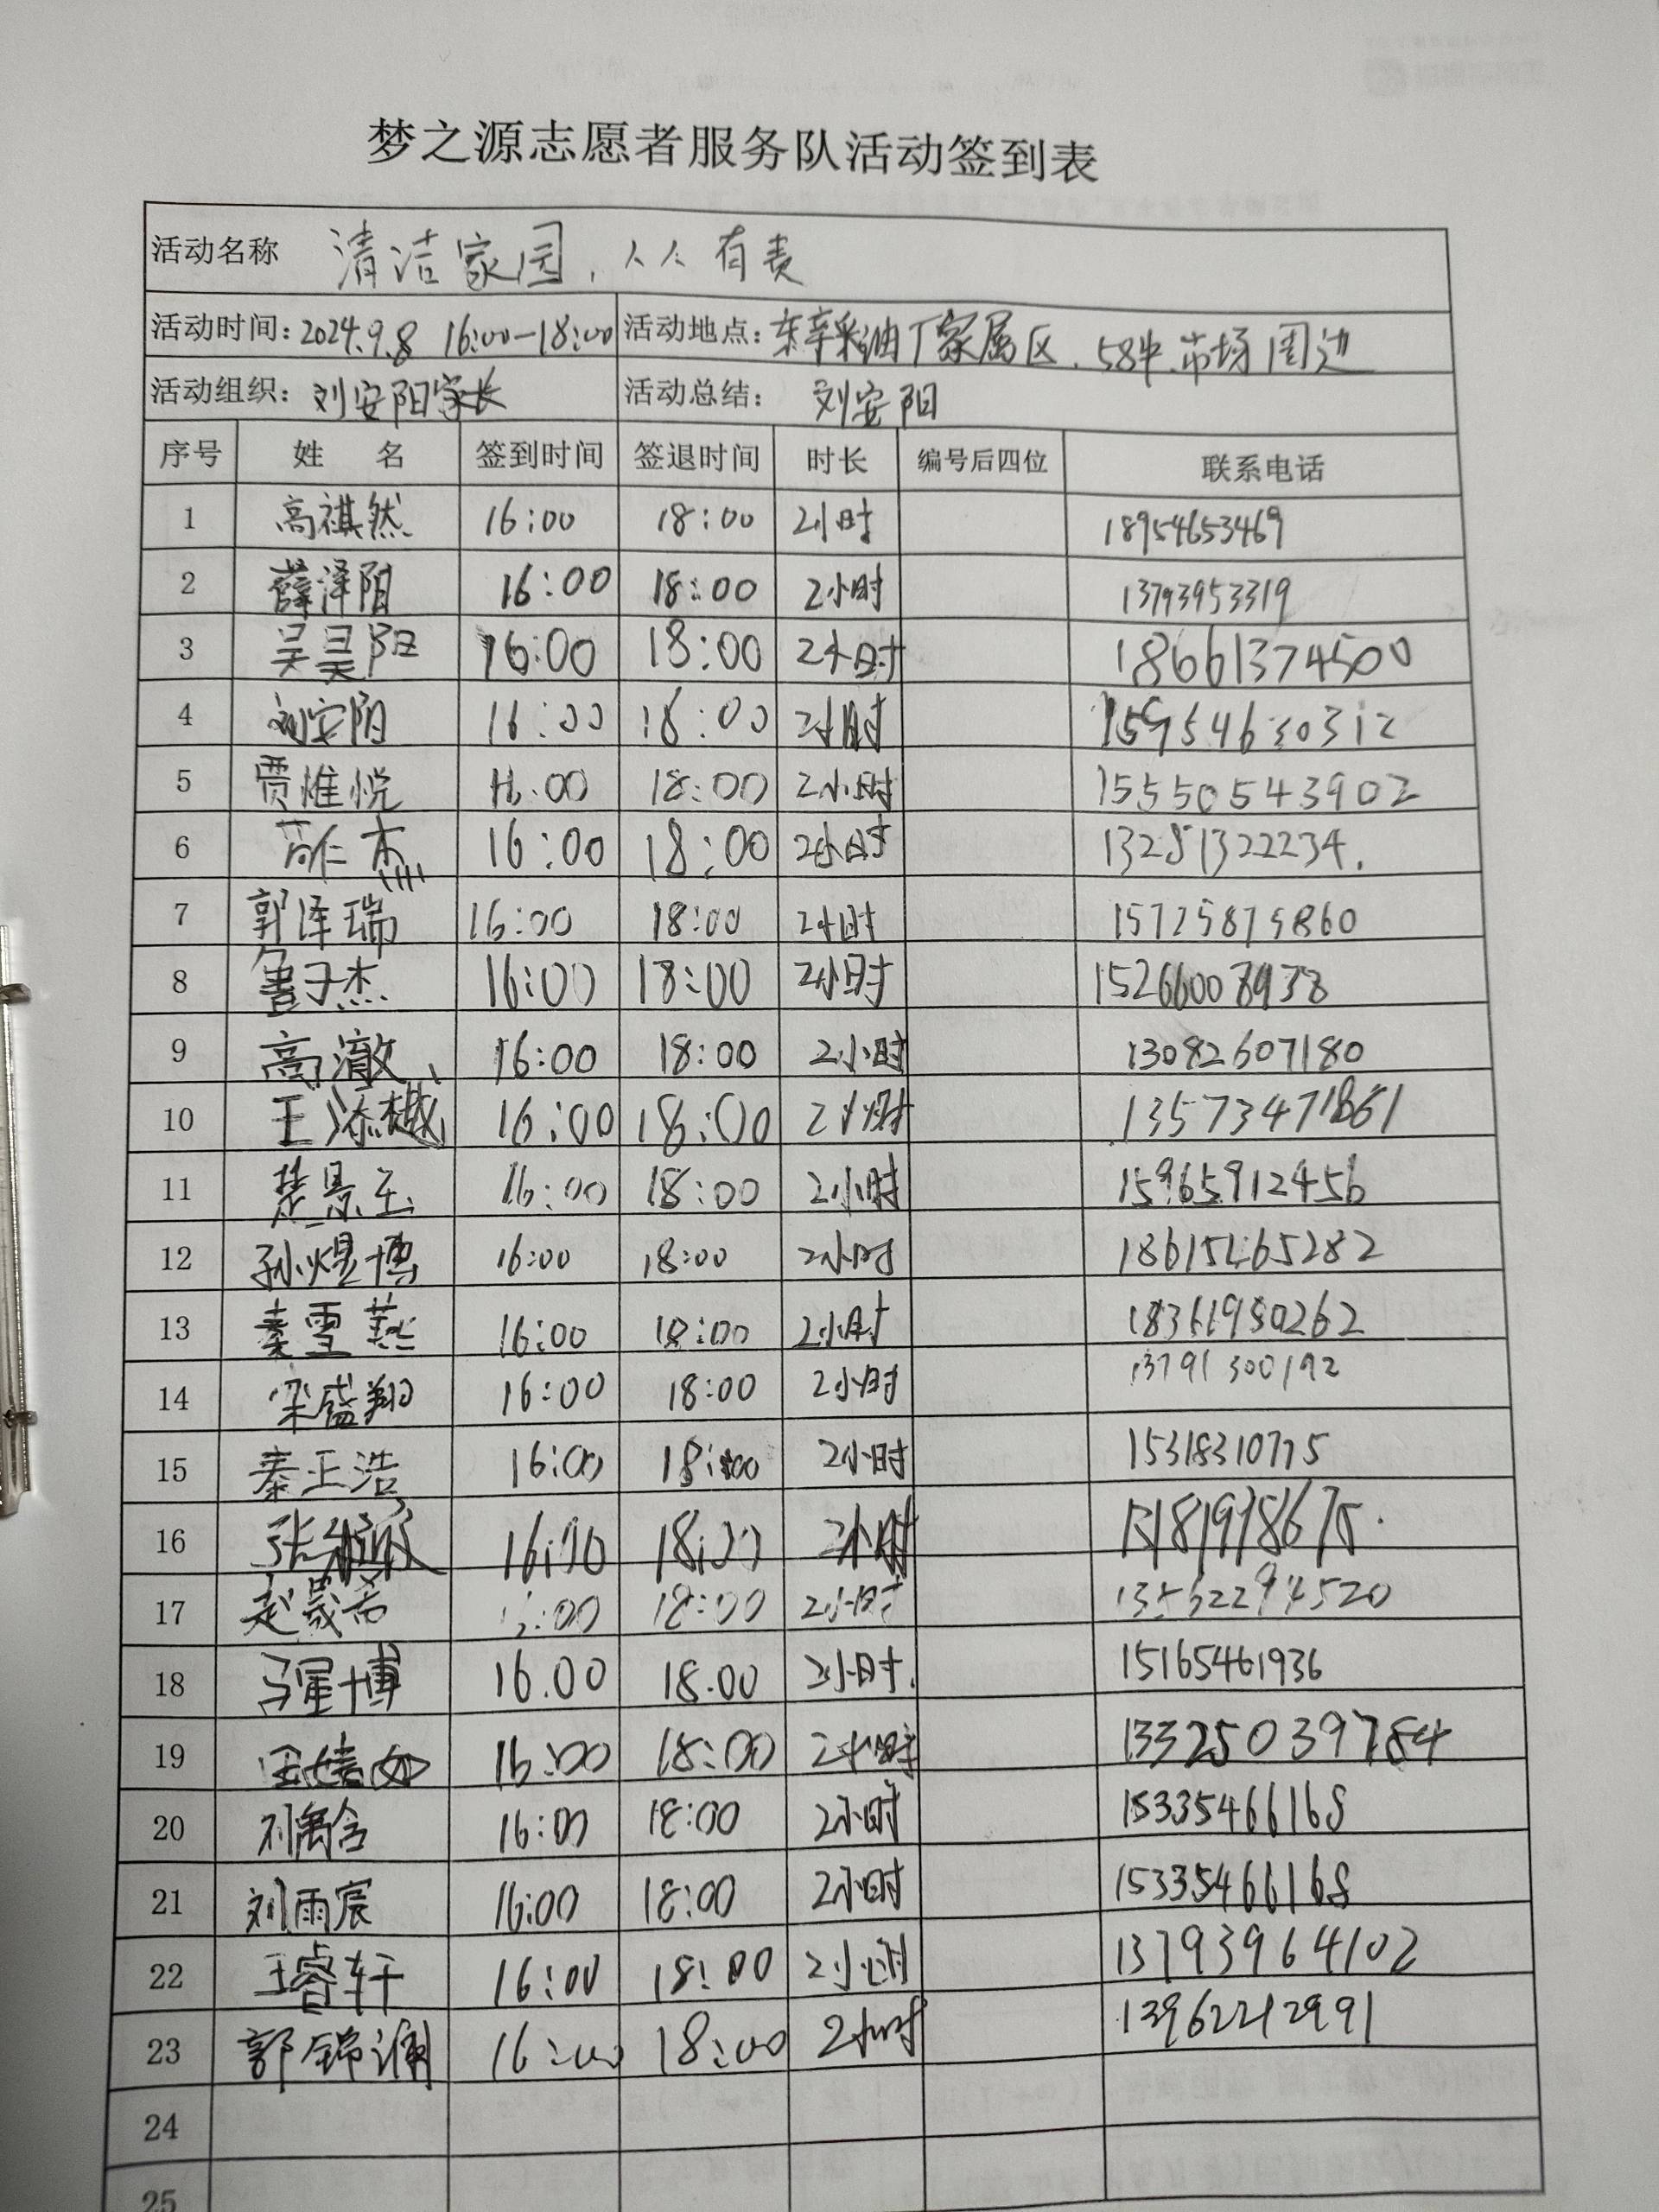 梦之源志愿者服务队活动签到表
活动名称 清洁家园，人人有责
活动时间：2024.9.8 16:00-18:00 活动地点：东辛采油厂家属区、58中、市场周边
活动组织：刘安阳家长 活动总结：刘安阳
序号 姓 名 签到时间 签退时间 时长 编号后四位 联系电话
1 高祺然 16:00 18:00 2小时 18954653469
2 薛泽阳 16:00 18:00 2小时 13793953319
3 吴昊阳 16:00 18:00 2小时 18661374500
4 刘安阳 16:00 18:00 2小时 15954630312
5 贾惟悦 16:00 18:00 2小时 15550543902
6 苟仁杰 16:00 18:00 2小时 13281322234.
7 郭泽瑞 16:00 18:00 2小时 15725875860
8 鲁子杰 16:00 18:00 2小时 15266008938
9 高澈 16:00 18:00 2小时 13082607180
10 王添樾 16:00 18:00 2小时 13573471861
11 楚景玉 16:00 18:00 2小时 15965912456
12 孙煜博 16:00 18:00 2小时 18615465282
13 秦雪 16:00 18:00 2小时 18361950262
14 梁盛翔 16:00 18:00 2小时 13791300192
15 秦正浩 16:00 18:00 2小时 15318310775
16 张 16:00 18:00 2小时
17 赵晟希 :00 18:00 2小时 13562294520
18 马军博 16.00 18.00 2小时. 15165461936
19 王婧如 16:00 18:00 2小时 13325039784
20 刘禹含 16:00 18:00 2小时 15335466168
21 刘雨宸 16:00 18:00 2小时 15335466168
22 王睿轩 16:00 18:00 2小时 13793964102
23 郭锦澜 16:00 18:00 2小时 13962212991
24
25